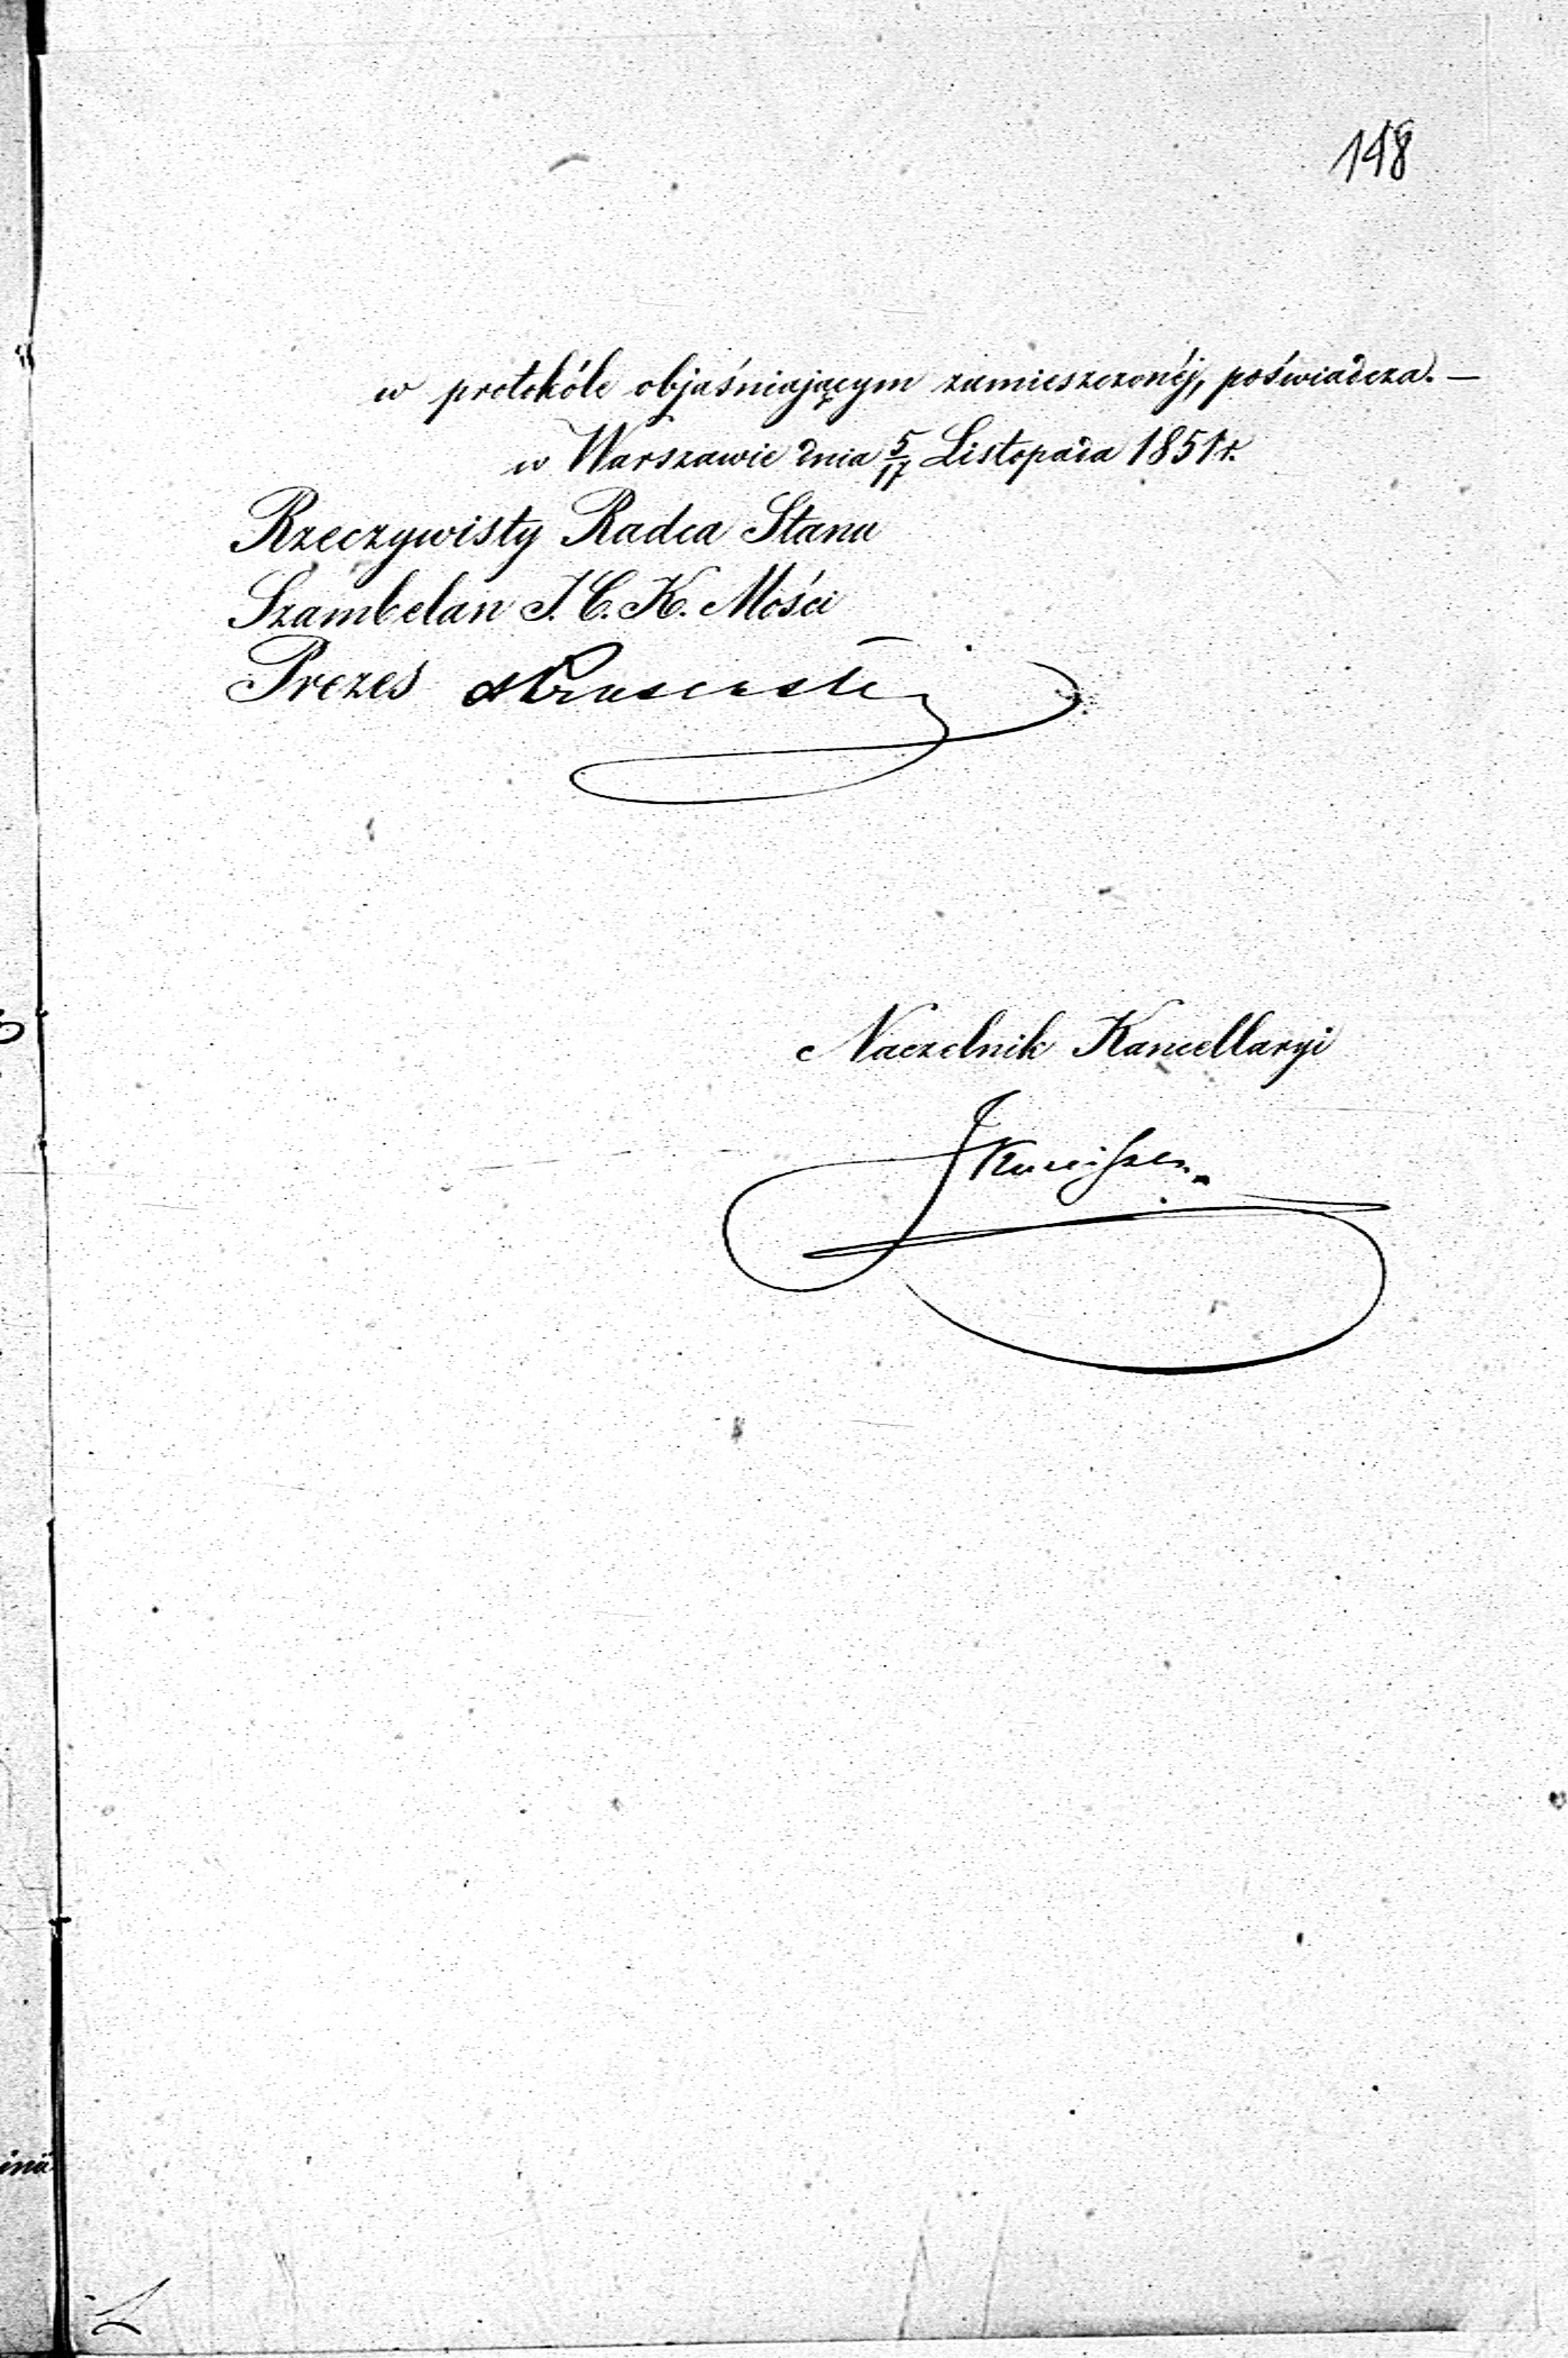 118
w protokóle objaśniającym zamieszczonéj, poświadcza. —
w Warszawie dnia 5/17 Listopada 1851 r.
Rzeczywisty Radca Stanu
Szambelan J. C. K. Mości
Prezes
Naczelnik Kancellaryi